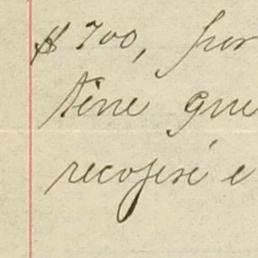 $700, por
tine que
recojeré e